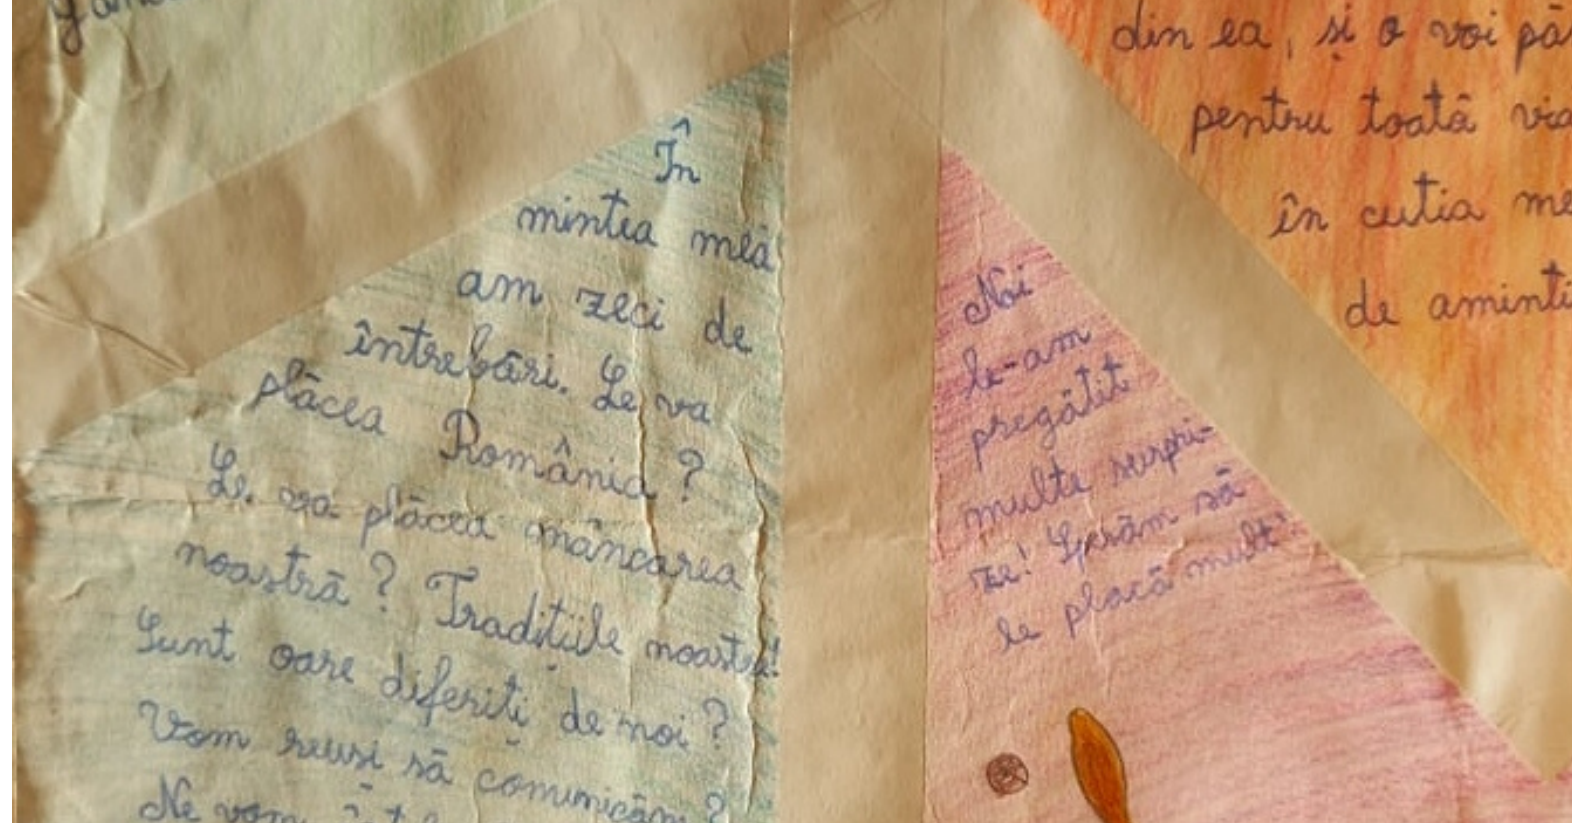 În
mintea mea
am zeci de
întrebări. Le va
plăcea România?
Le va plăcea mâncarea
noastră? Tradițiile noastre?
Sunt oare diferiți de noi?
Vom reuși să comunicăm?
Ne vom
Noi
le-am
pregătit
multe surpri-
ze! Sperăm să
le placă mult!
din ea, și o voi
pentru toată
în cutia
de